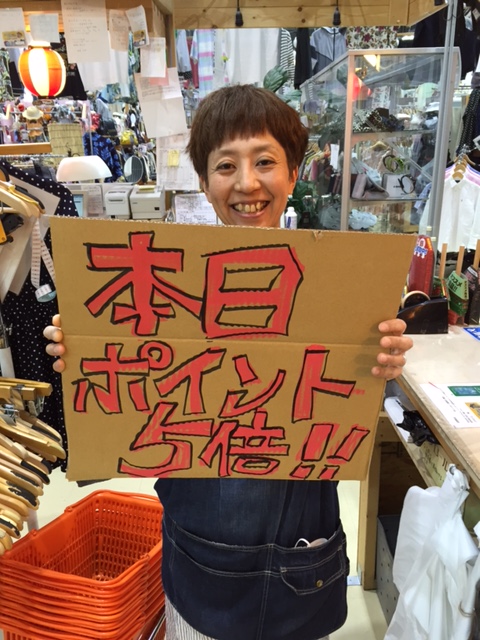 本日
ポイント
5倍!!